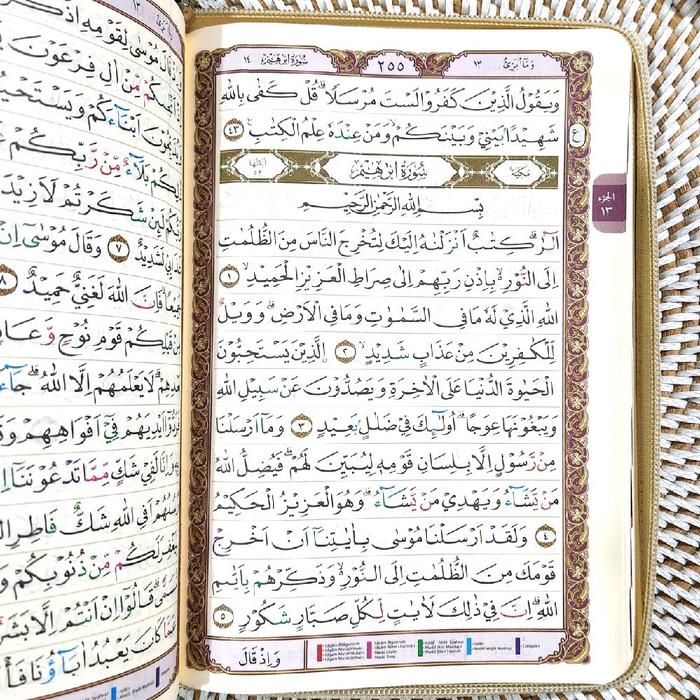 وَمَآ اُبَرِّئُ ١٣ ٢٥٥ سُوْرَةُ اِبْرٰهِيْمَ ١٤
وَيَقُوْلُ الَّذِيْنَ كَفَرُوْا لَسْتَ مُرْسَلًا ۗ قُلْ كَفٰى بِاللّٰهِ
شَهِيْدًاۢ بَيْنِيْ وَبَيْنَكُمْۙ وَمَنْ عِنْدَهٗ عِلْمُ الْكِتٰبِ ٤٣
ع
مَكِّيَّة سُوْرَةُ اِبْرٰهِيْمَ اٰيَاتُهَا ٥٢
بِسْمِ اللّٰهِ الرَّحْمٰنِ الرَّحِيْمِ
الجزء ١٣
الۤرٰ ۗ كِتٰبٌ اَنْزَلْنٰهُ اِلَيْكَ لِتُخْرِجَ النَّاسَ مِنَ الظُّلُمٰتِ
اِلَى النُّوْرِ ەۙ بِاِذْنِ رَبِّهِمْ اِلٰى صِرَاطِ الْعَزِيْزِ الْحَمِيْدِۙ ١
اللّٰهِ الَّذِيْ لَهٗ مَا فِى السَّمٰوٰتِ وَمَا فِى الْاَرْضِۗ وَوَيْلٌ
لِّلْكٰفِرِيْنَ مِنْ عَذَابٍ شَدِيْدٍۙ ٢ الَّذِيْنَ يَسْتَحِبُّوْنَ
الْحَيٰوةَ الدُّنْيَا عَلَى الْاٰخِرَةِ وَيَصُدُّوْنَ عَنْ سَبِيْلِ اللّٰهِ
وَيَبْغُوْنَهَا عِوَجًاۗ اُولٰۤىِٕكَ فِيْ ضَلٰلٍۢ بَعِيْدٍ ٣ وَمَآ اَرْسَلْنَا
مِنْ رَّسُوْلٍ اِلَّا بِلِسَانِ قَوْمِهٖ لِيُبَيِّنَ لَهُمْۗ فَيُضِلُّ اللّٰهُ
مَنْ يَّشَاۤءُ وَيَهْدِيْ مَنْ يَّشَاۤءُۗ وَهُوَ الْعَزِيْزُ الْحَكِيْمُ
٤ وَلَقَدْ اَرْسَلْنَا مُوْسٰى بِاٰيٰتِنَآ اَنْ اَخْرِجْ
قَوْمَكَ مِنَ الظُّلُمٰتِ اِلَى النُّوْرِ ەۙ وَذَكِّرْهُمْ بِاَيّٰىمِ
اللّٰهِ ۗاِنَّ فِيْ ذٰلِكَ لَاٰيٰتٍ لِّكُلِّ صَبَّارٍ شَكُوْرٍ ٥
وَاِذْ قَالَ
١٣
قَالَ مُوْسٰى لِقَوْمِهِ
مِّنْ اٰلِ فِرْعَوْنَ
اَبْنَاۤءَكُمْ وَيَسْتَحْيُوْنَ
بَلَاۤءٌ مِّنْ رَّبِّكُمْ
لَىِٕنْ شَكَرْتُمْ لَاَزِيْدَ
لَشَدِيْدٌ ٧ وَقَالَ مُوْسٰٓى اِنْ
فَاِنَّ اللّٰهَ لَغَنِيٌّ حَمِيْدٌ ٨
قَوْمِ نُوْحٍ وَّعَادٍ
لَا يَعْلَمُهُمْ اِلَّا اللّٰهُ ۗ
اَيْدِيَهُمْ فِيْٓ اَفْوَاهِهِمْ
لَفِيْ شَكٍّ مِّمَّا تَدْعُوْنَنَآ
اَفِى اللّٰهِ شَكٌّ فَاطِرِ
لَكُمْ مِّنْ ذُنُوْبِكُمْ
قَالُوْٓا اِنْ اَنْتُمْ اِلَّا بَشَرٌ
كَانَ يَعْبُدُ اٰبَاۤؤُنَا